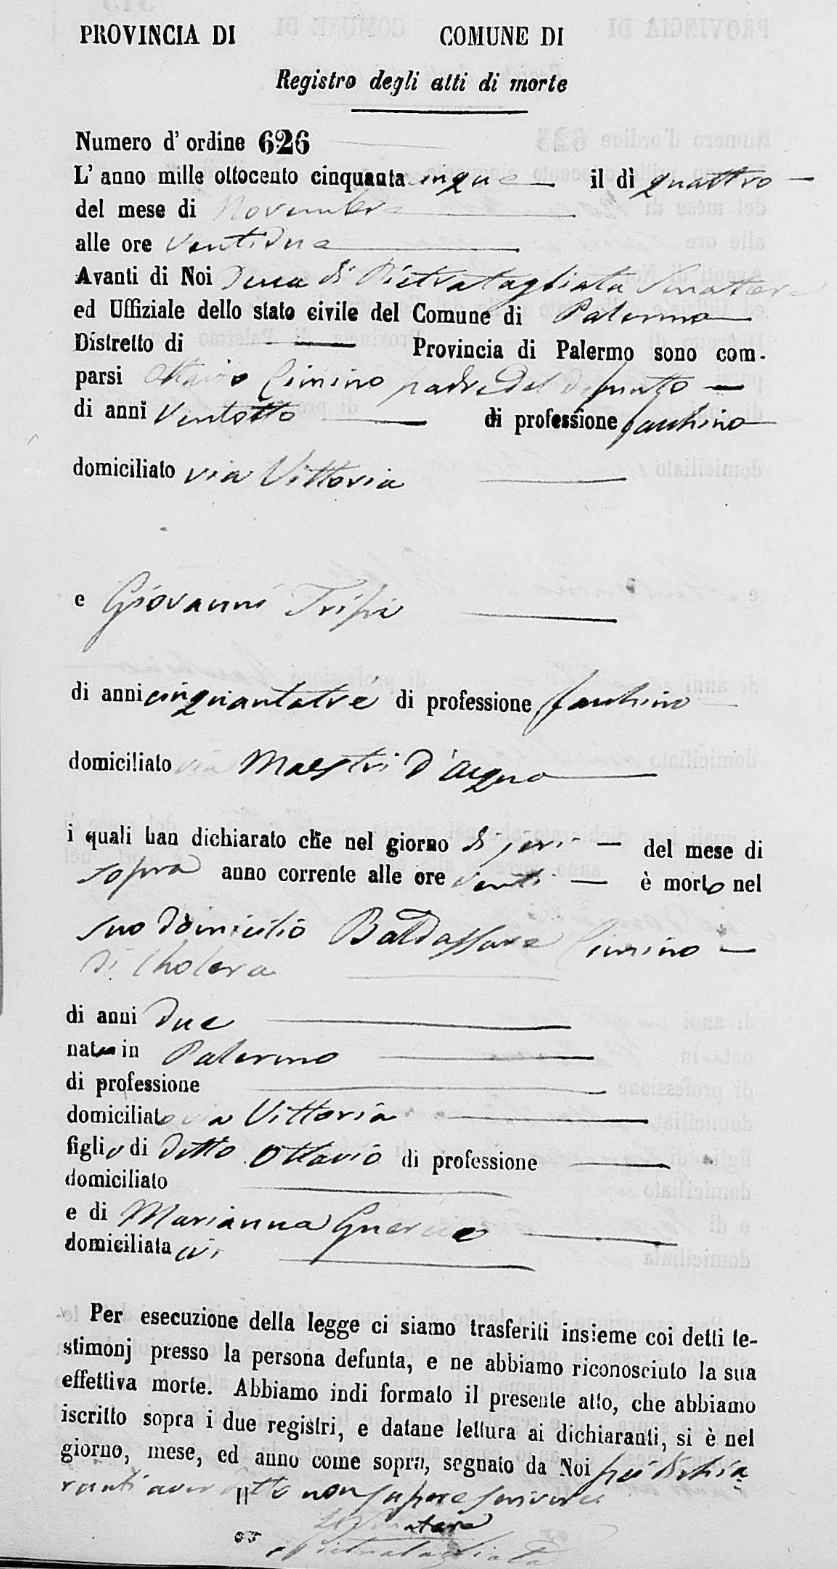 PROVINCIA DI COMUNE DI
Registro degli atti di morte
Numero d' ordine 626
L' anno mille ottocento cinquantacinque il dì quattro
del mese di Novembre
alle ore ventidue
Avanti di Noi Duca di Pietratagliata Senatore
ed Uffiziale dello stato civile del Comune di Palermo
Distretto di Provincia di Palermo sono com-
parsi Ottavio Cimino padre del defunto
di anni Ventotto di professione facchino
domiciliato via Vittoria
e Giovanni Trifirò
di anni cinquantatré di professione facchino
domiciliato via Maestri d'acqua
i quali han dichiarato che nel giorno di jeri del mese di
sopra anno corrente alle ore venti è morto nel
suo domicilio Baldassare Cimino
di Cholera
di anni due
nato in Palermo
di professione
domiciliato via Vittoria
figlio di detto Ottavio di professione
domiciliato
e di Marianna
domiciliata ivi
Per esecuzione della legge ci siamo trasferiti insieme coi detti te-
stimonj presso la persona defunta, e ne abbiamo riconosciuto la sua
effettiva morte. Abbiamo indi formato il presente atto, che abbiamo
iscritto sopra i due registri, e datane lettura ai dichiaranti, si è nel
giorno, mese, ed anno come sopra, segnato da Noi più dichia
ranti aver detto non sapere scrivere
Il Senatore
Pietratagliata